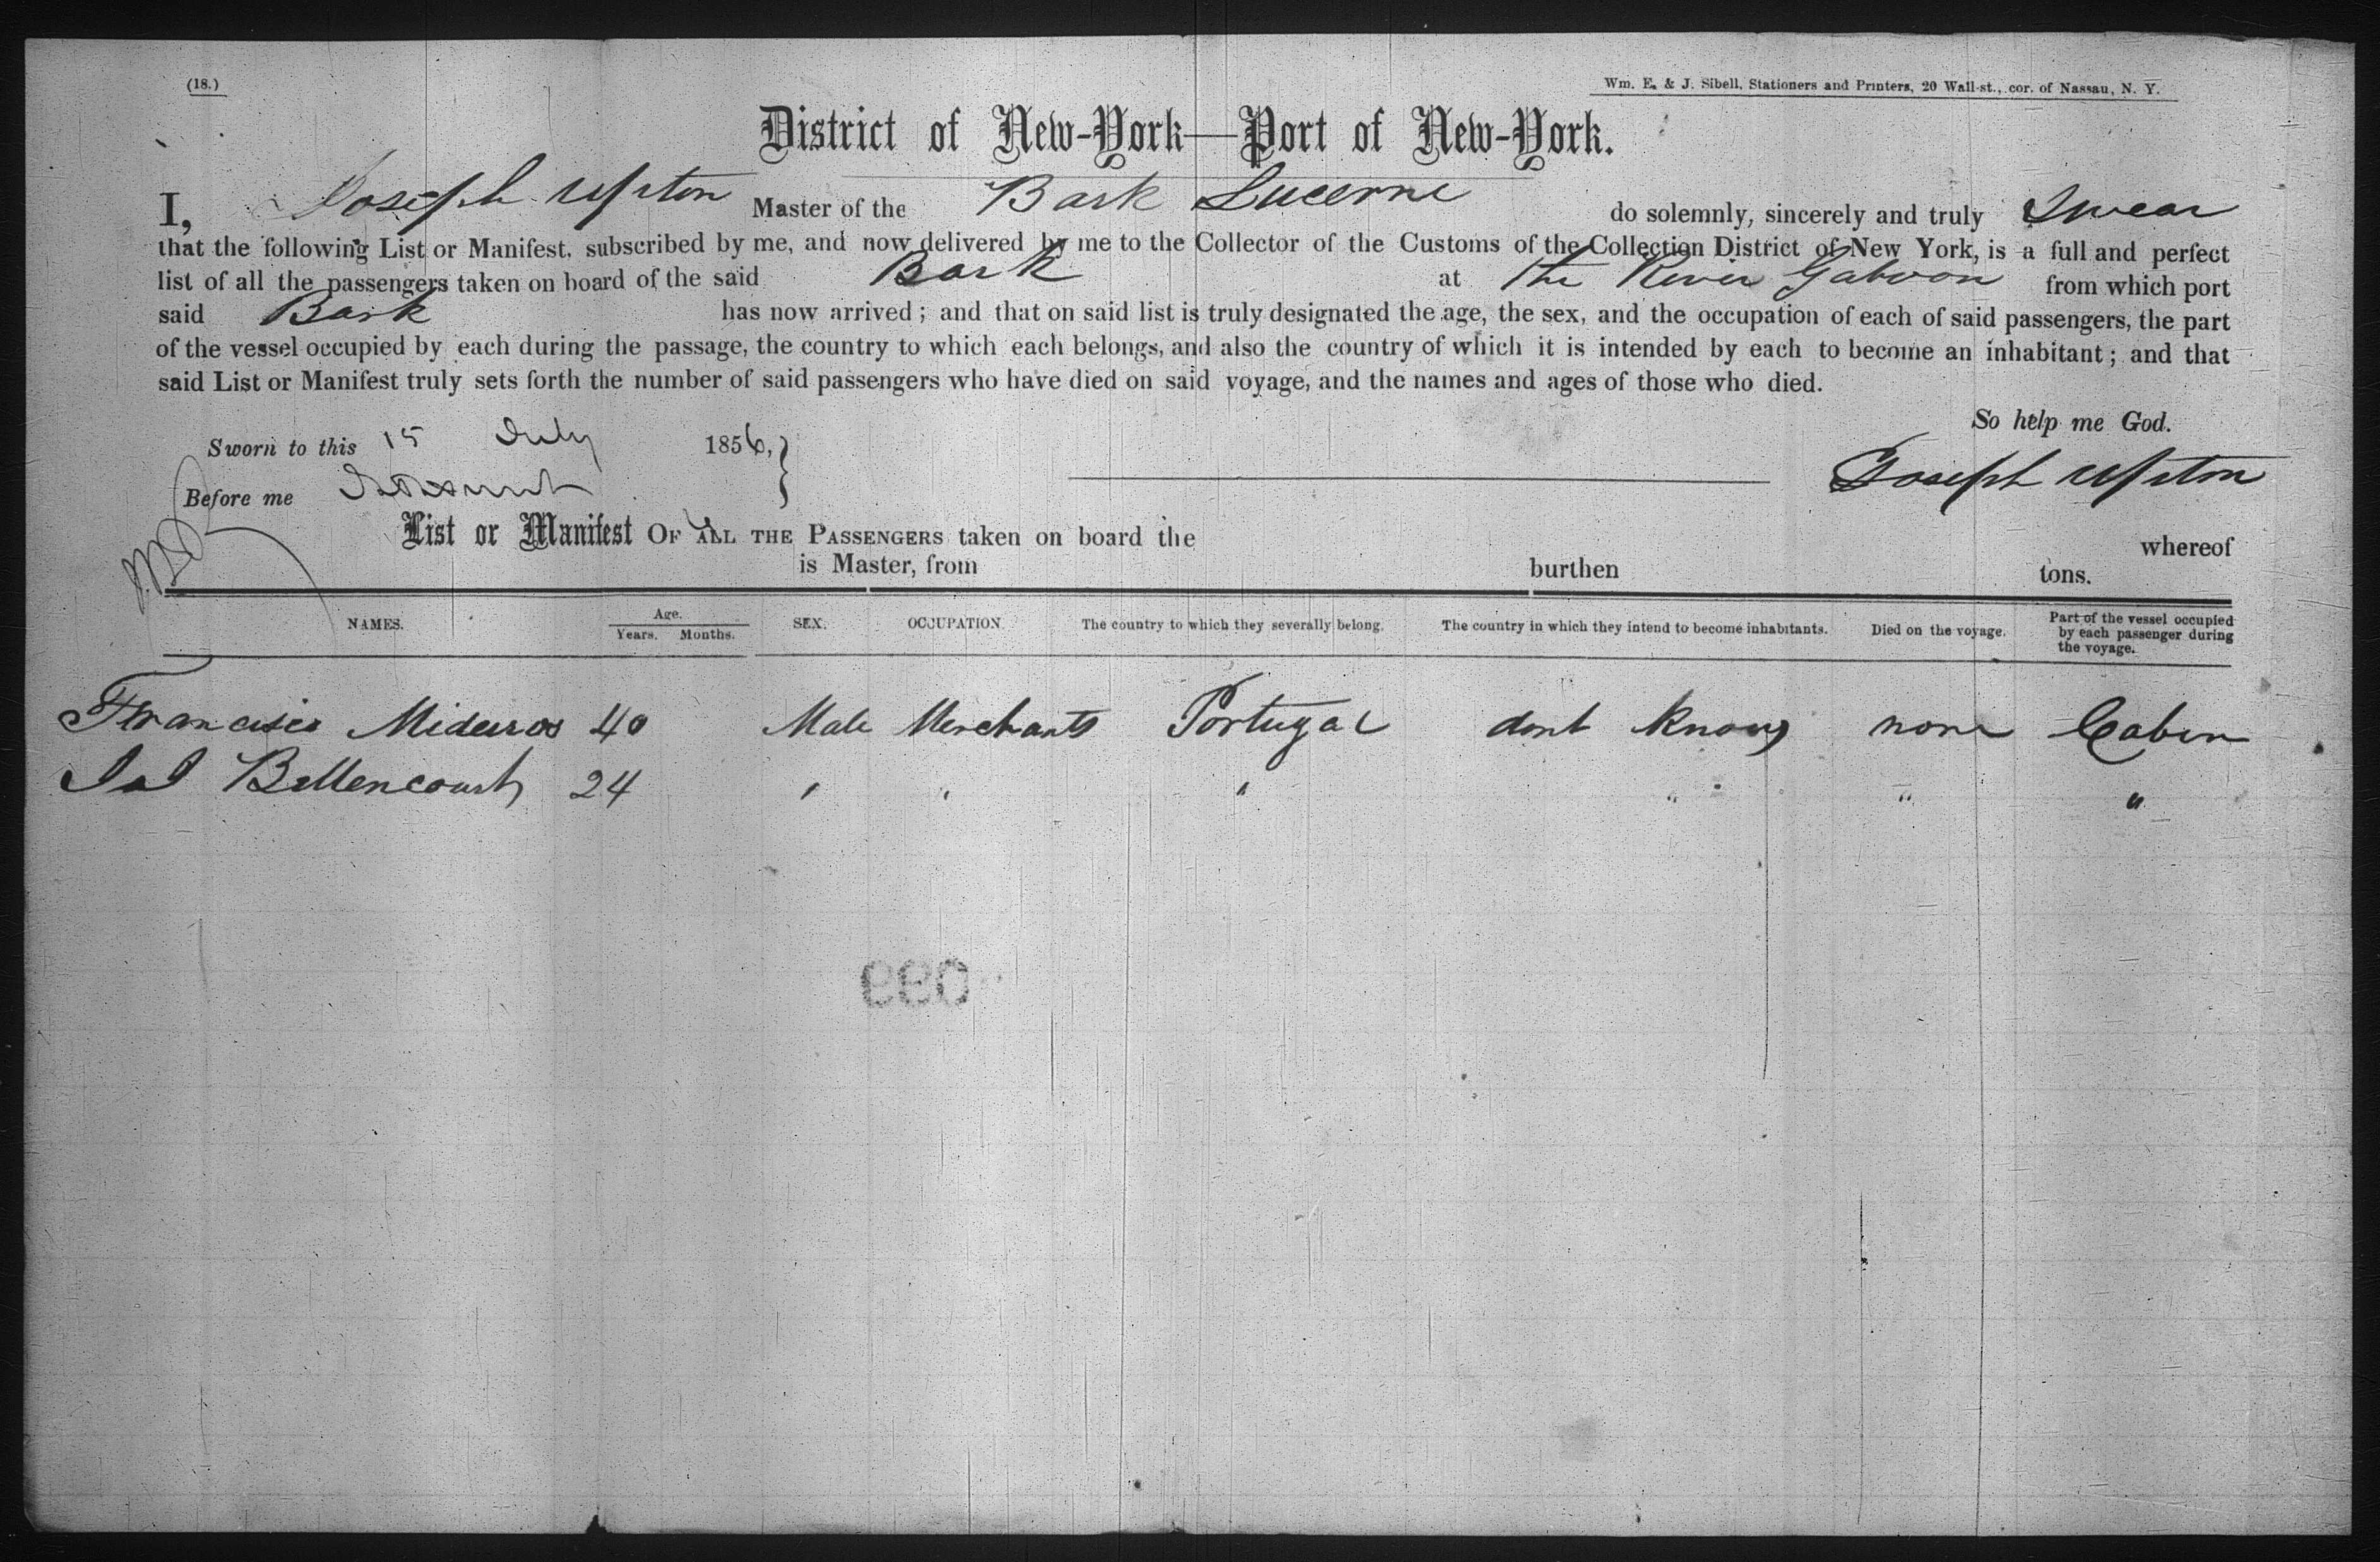 (18.)
Wm. E. & J. Sibell, Stationers and Printers, 20 Wall-st., cor. of Nassau, N. Y.
District of New-York—Port of New-York.
I, Joseph Upton Master of the Bark Lucerne do solemnly, sincerely and truly Swear
that the following List or Manifest, subscribed by me, and now delivered by me to the Collector of the Customs of the Collection District of New York, is a full and perfect
list of all the passengers taken on board of the said Bark at the River Gaboon from which port
said Bark has now arrived; and that on said list is truly designated the age, the sex, and the occupation of each of said passengers, the part
of the vessel occupied by each during the passage, the country to which each belongs, and also the country of which it is intended by each to become an inhabitant; and that
said List or Manifest truly sets forth the number of said passengers who have died on said voyage, and the names and ages of those who died.
So help me God.
Sworn to this 15 July 1856,
Joseph Upton
Before me
List or Manifest OF ALL THE PASSENGERS taken on board the whereof
is Master, from burthen tons.
NAMES. Age. Years. Months. SEX. OCCUPATION. The country to which they severally belong. The country in which they intend to become inhabitants. Died on the voyage. Part of the vessel occupied by each passenger during the voyage.
Francisco Mideiros 40 Male Merchants Portugal dont Know none Cabin
Bettencourt 24 " " " " " "
099